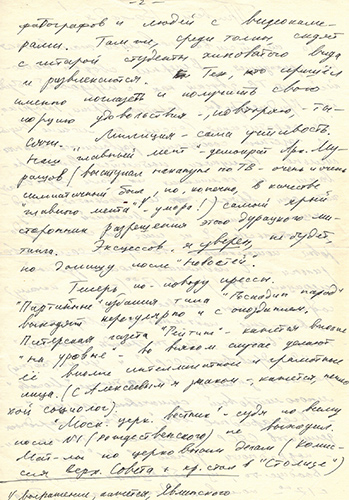 - 2 -
фотографов и людей с видеокаме-
рами. Там же, среди толпы, сидят
с гитарой студенты хиповатого вида
и развлекаются. Тех, кто пришёл
именно поглазеть и получить свою
порцию удовольствия -, повторяю, ты-
сячи. Милиция - сама учтивость.
Наш "главный мент" - демократ Арк. Му-
рашов (выступал накануне по ТВ - очень и очень
симпатичный был, но, конечно, в качестве
"главного мента" - умора!) самый ярый
сторонник разрешения этого дурацкого ми-
тинга. Эксцессов, я уверен, не будет,
но доищу после "Новостей".
Теперь по поводу прессы.
"Партийные" издания типа "Господин народ"
выходят нерегулярно и с опозданием.
Питерская газета "Рейтинг" - кажется вполне
"на уровне" во всяком случае делают
её вполне интеллигентные и грамотные
лица. (С Алексеевым я знаком -, кажется, неплохой социолог).
"Моск. церк. вестник" - судя по всему
после №1 (рождественского) не выходил.
Мат-лы по церковным делам (комис-
сия Верх. Совета + кр. стол в "Столице")
V выражение, кажется, Явлинского